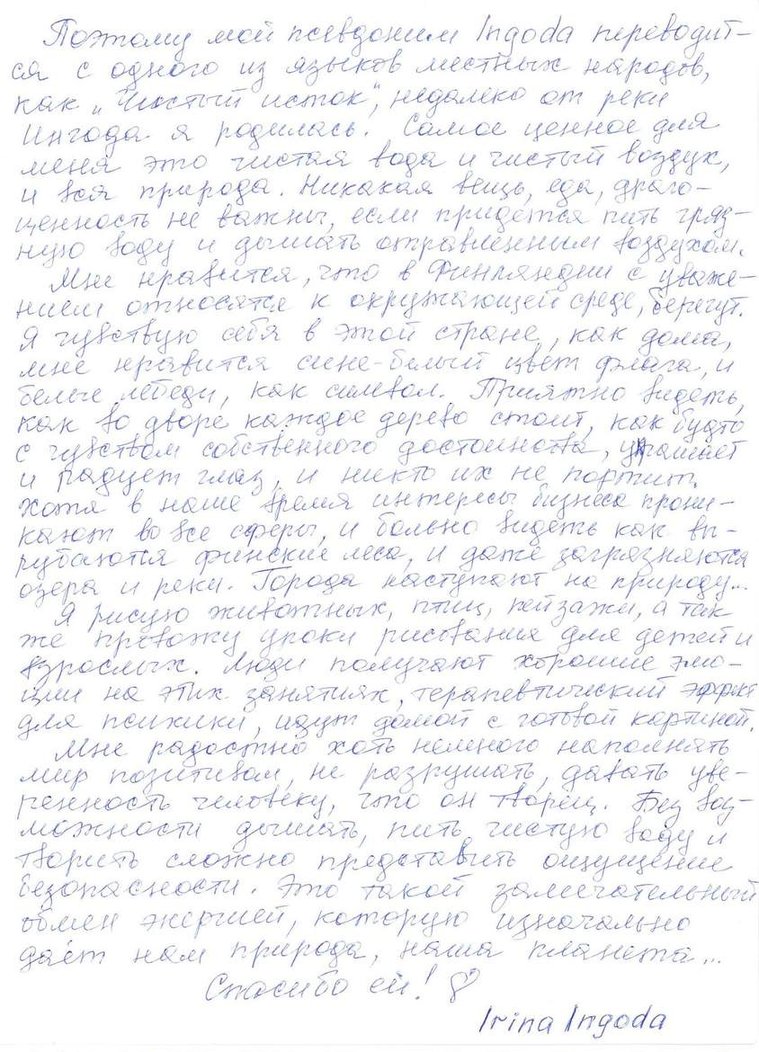 Поэтому мой псевдоним Ingoda переводит-
ся с одного из языков местных народов,
как „Чистый исток", недалеко от реки
Ингода я родилась. Самое ценное для
меня это чистая вода и чистый воздух,
и вся природа. Никакая вещь, еда, драго-
ценность не важны, если придется пить гряз-
ную воду и дышать отравленным воздухом.
Мне нравится, что в Финляндии с уваже-
нием относятся к окружающей среде, берегут.
Я чувствую себя в этой стране, как дома,
мне нравится сине-белый цвет флага, и
белые лебеди, как символ. Приятно видеть,
как во дворе каждое дерево стоит, как будто
с чувством собственного достоинства, украшает
и радует глаз, и никто их не портит.
Хотя в наше время интересы бизнеса прони-
кают во все сферы, и больно видеть как вы-
рубаются финские леса, и даже загрязняются
озера и реки. Города наступают на природу...
Я рисую животных, птиц, пейзажи, а так
же провожу уроки рисования для детей и
взрослых. Люди получают хорошие эмо-
ции на этих занятиях, терапевтический эффект
для психики, идут домой с готовой картиной.
Мне радостно хоть немного наполнять
мир позитивом, не разрушать, давать уве-
ренность человеку, что он творец. Без воз-
можности дышать, пить чистую воду и
творить сложно представить ощущение
безопасности. Это такой замечательный
обмен энергией, которую изначально
даёт нам природа, наша планета...
Спасибо ей! ♡
Irina Ingoda